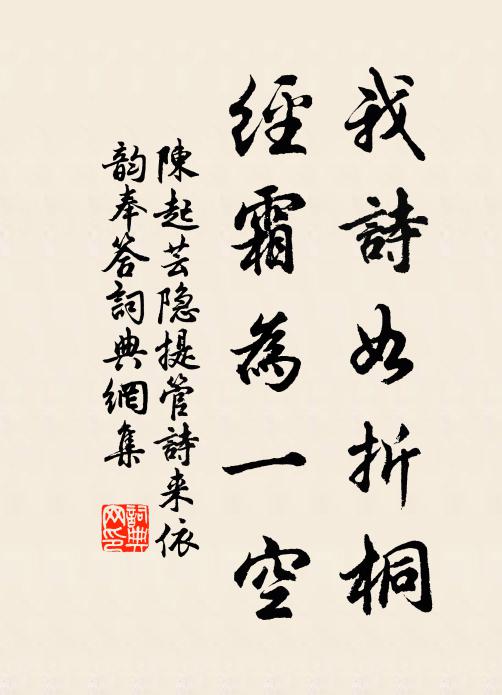 我詩如折桐
經霜為一空
陳起芸隐提管詩来依
韵奉答詞典網集
詞典网印